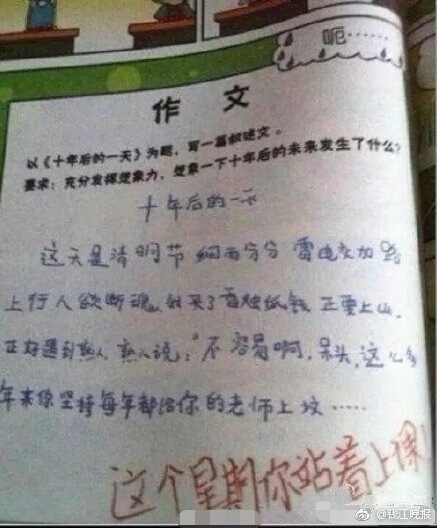 呃……
作 文
以《十年后的一天》为题，写一篇叙述文。
要求：充分发挥想象力，想象一下十年后的未来发生了什么？
十年后的一天
这天是清明节 细雨分分 雷电交加 路
上行人欲断魂，我买了香烛纸钱 正要上山，
正好遇到熟人，熟人说："不容易啊，呆头，这么多
年来你坚持每年都给你的老师上坟……
这个星期你站着上课！
@钱江晚报